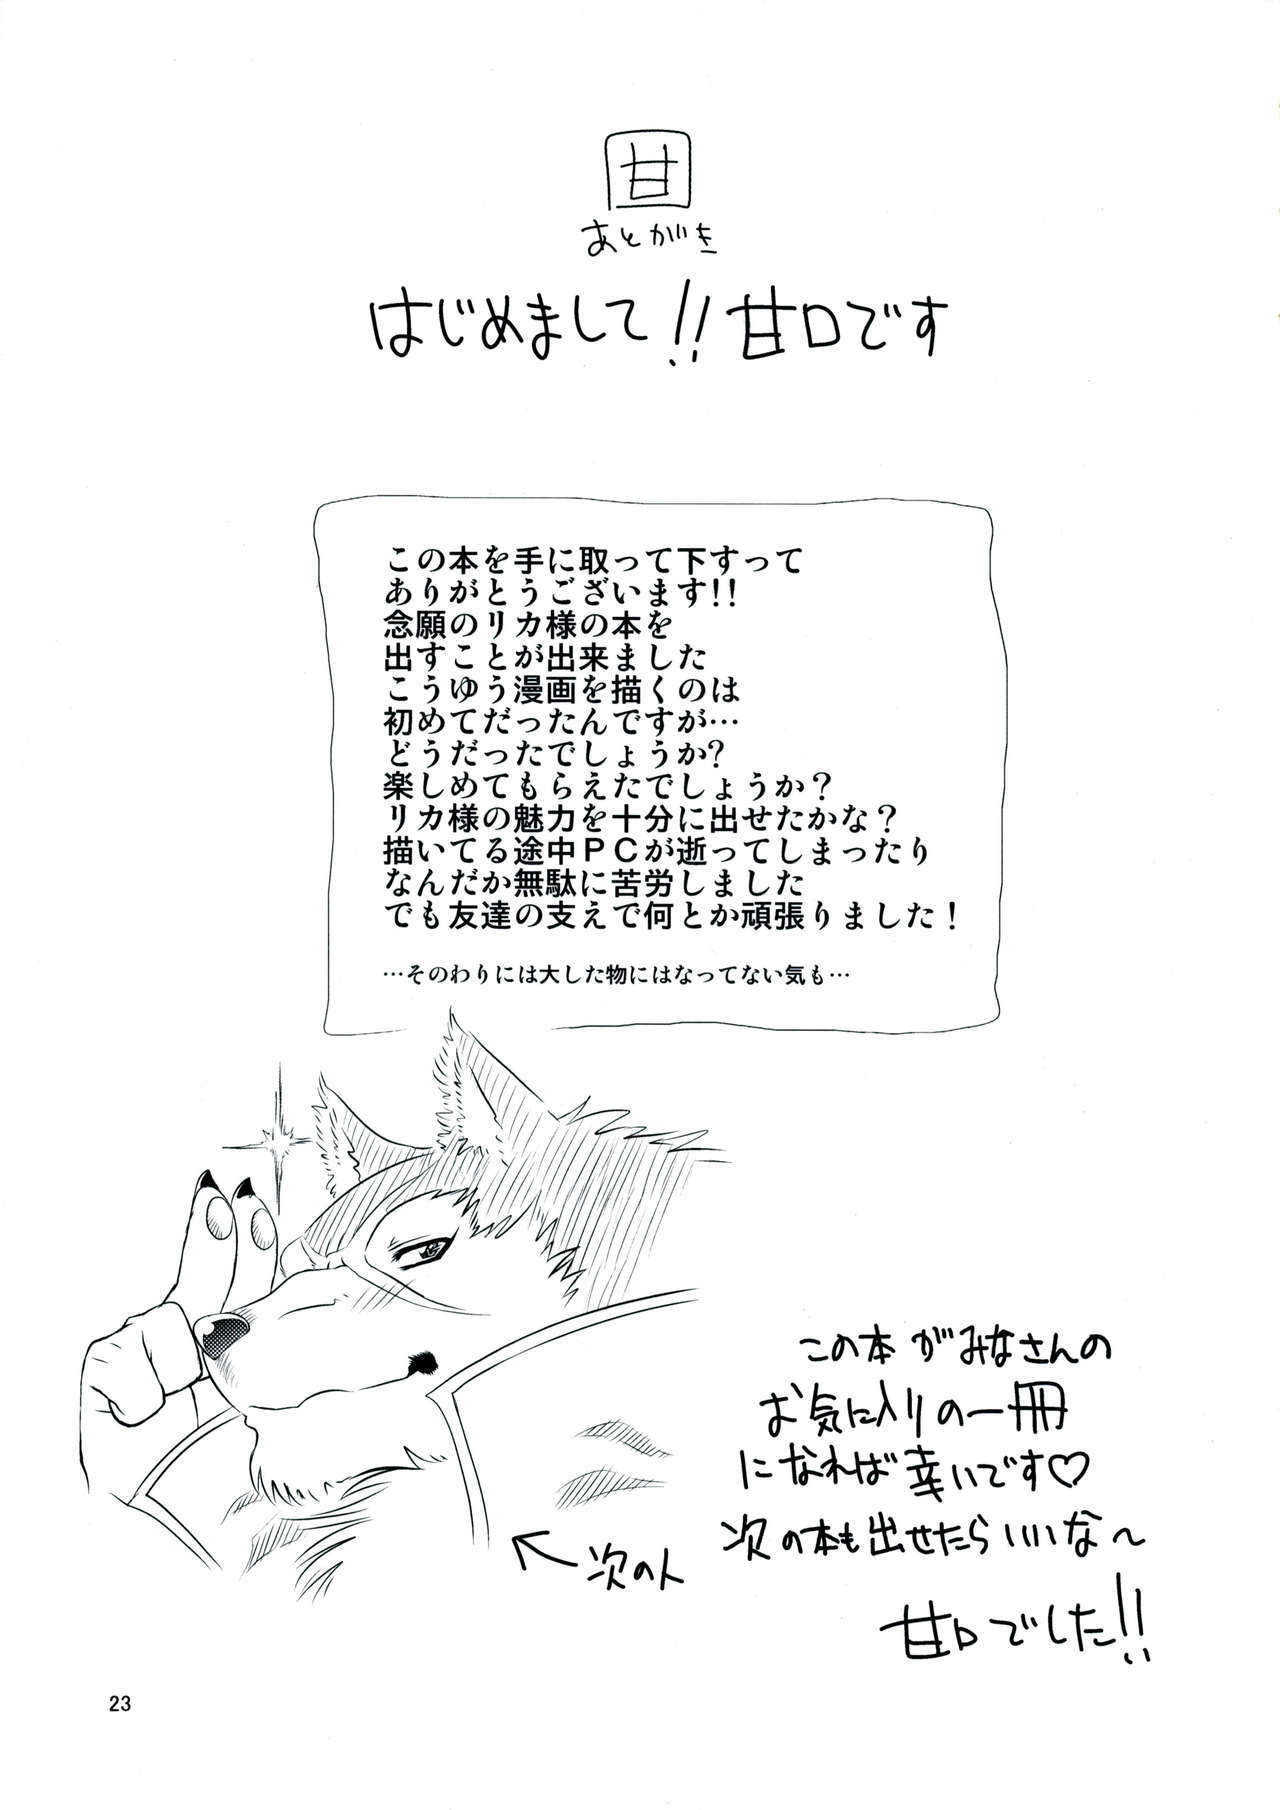 甘
あとがき
はじめまして!!甘口です
この本を手に取って下すって
ありがとうございます!!
念願のリカ様の本を
出すことが出来ました
こうゆう漫画を描くのは
初めてだったんですが…
どうだったでしょうか?
楽しめてもらえたでしょうか?
リカ様の魅力を十分に出せたかな?
描いてる途中PCが逝ってしまったり
なんだか無駄に苦労しました
でも友達の支えで何とか頑張りました!
…そのわりには大した物にはなってない気も…
この本がみなさんの
お気に入りの一冊
になれば幸いです♡
次の本も出せたらいいな〜
←次の人
甘口でした!!
23